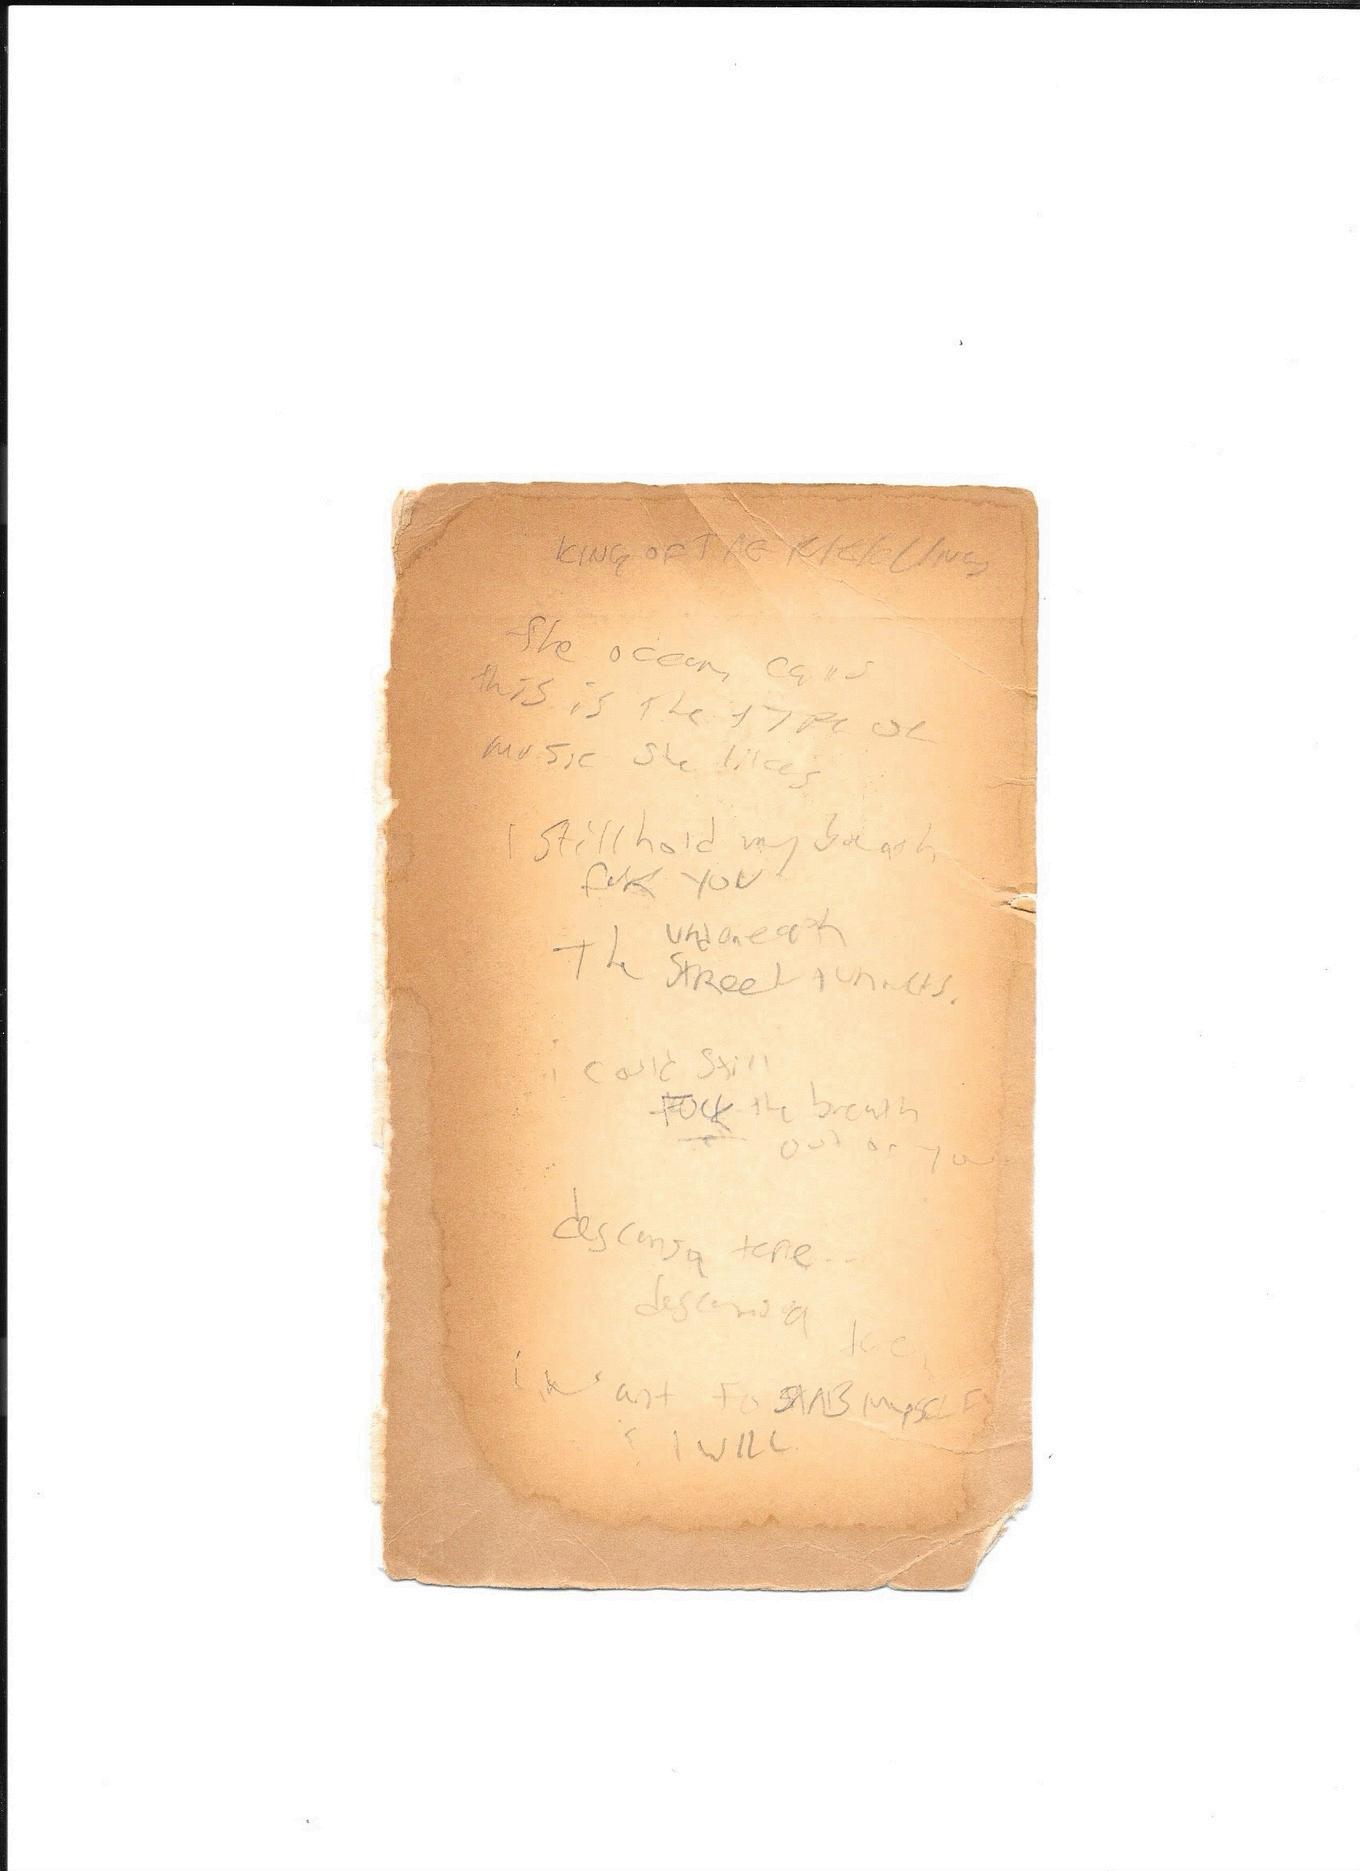 KING OF THE
the ocean calls
this is the TYPE OF
music she likes
I still hold my breath
fuk YOU
underneath
The STREET tunnels.
i could still
FUCK the breath
out of you
descansa
descansa
i want to STAB MYSELF
i I WILL